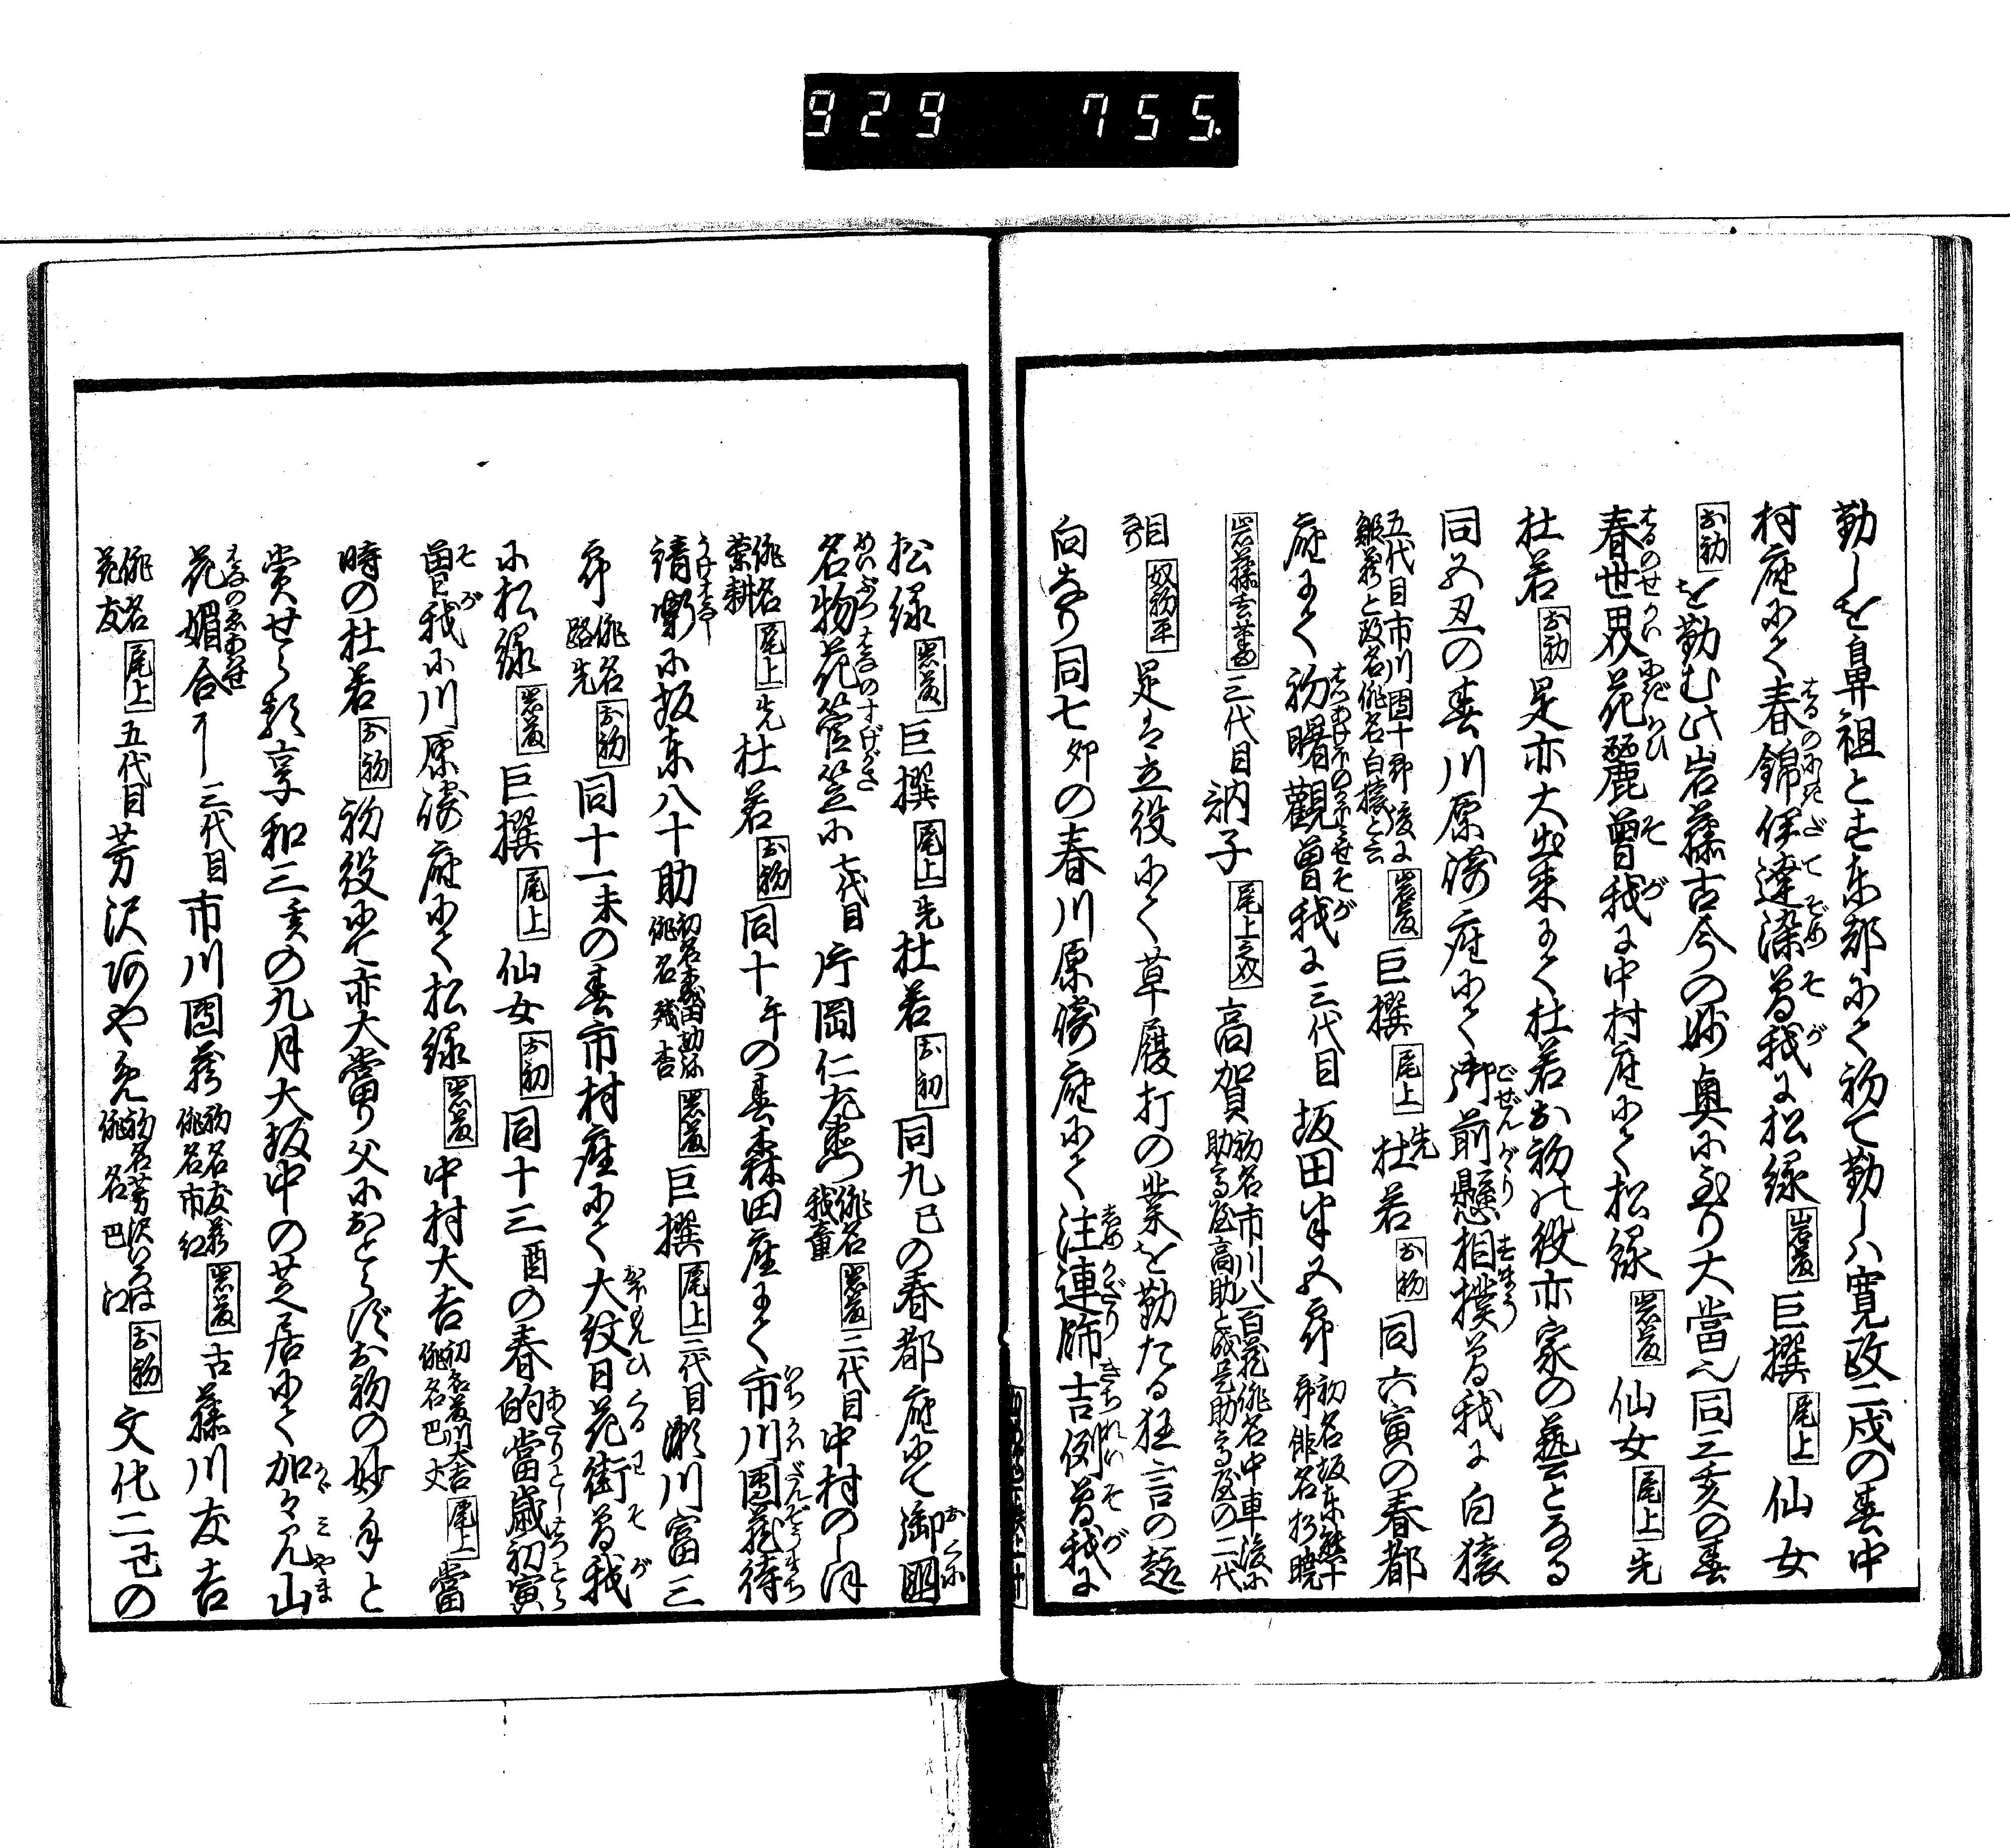 929 755.
勤しを鼻祖とす東都にて初て勤しハ寛政二戌の春中
村座にて春錦伊達染曽我に松緑 岩藤 巨撰 尾上 仙女
お初 を勤む此岩藤古今の妙奥に至り大當也同三亥の春
春世界花麗曽我に中村座にて松緑 岩藤 仙女 尾上 先
杜若 お初 是亦大出来にて杜若お初の役亦家の藝となる
同五丑の春川原崎座にて御前懸相撲曽我に白猿
五代目市川團十郎後に
鰕蔵と改名俳名白猿と云 岩藤 巨撰 尾上 先杜若 お初 同六寅の春都
座にて初曙觀曽我に三代目坂田半五郎 初名坂東熊十
郎俳名杉暁
岩藤 三代目訥子 尾上 高賀 初名市川八百蔵俳名中車後に
助高屋高助と改是助高屋の二代
目 奴初平 是は立役にて草履打の業を勤たる狂言の趣
向なり同七卯の春川原崎座にて注連飾吉例曽我に
松緑 岩藤 巨撰 尾上 先杜若 お初 同九巳の春都座にて御国
名物花菅笠に七代目片岡仁左衛門 俳名
我童 岩藤 三代目中村のしほ
俳名 尾上 先杜若 お初 同十午の春森田座にて市川團蔵待
請噺に坂東八十助 俳名 岩藤 巨撰 尾上 三代目瀬川富三
郎 俳名
路先 お初 同十一未の春市村座にて大紋日花街曽我
に松緑 岩藤 巨撰 尾上 仙女 お初 同十三酉の春的當歳初寅
曽我に川原崎座にて松緑 岩藤 中村大吉 初名藤川大吉
俳名巴丈 尾上 當
時の杜若 お初 初役にて亦大當り父におとらずお初の妙手と
賞せらる享和三亥の九月大坂中の芝居にて加々見山
花媚合に三代目市川團蔵 初名友蔵
俳名市紅 岩藤 古藤川友吉
俳名
花友 尾上 五代目芳沢あやめ 初名芳沢いろは
俳名巴江 お初 文化二丑の